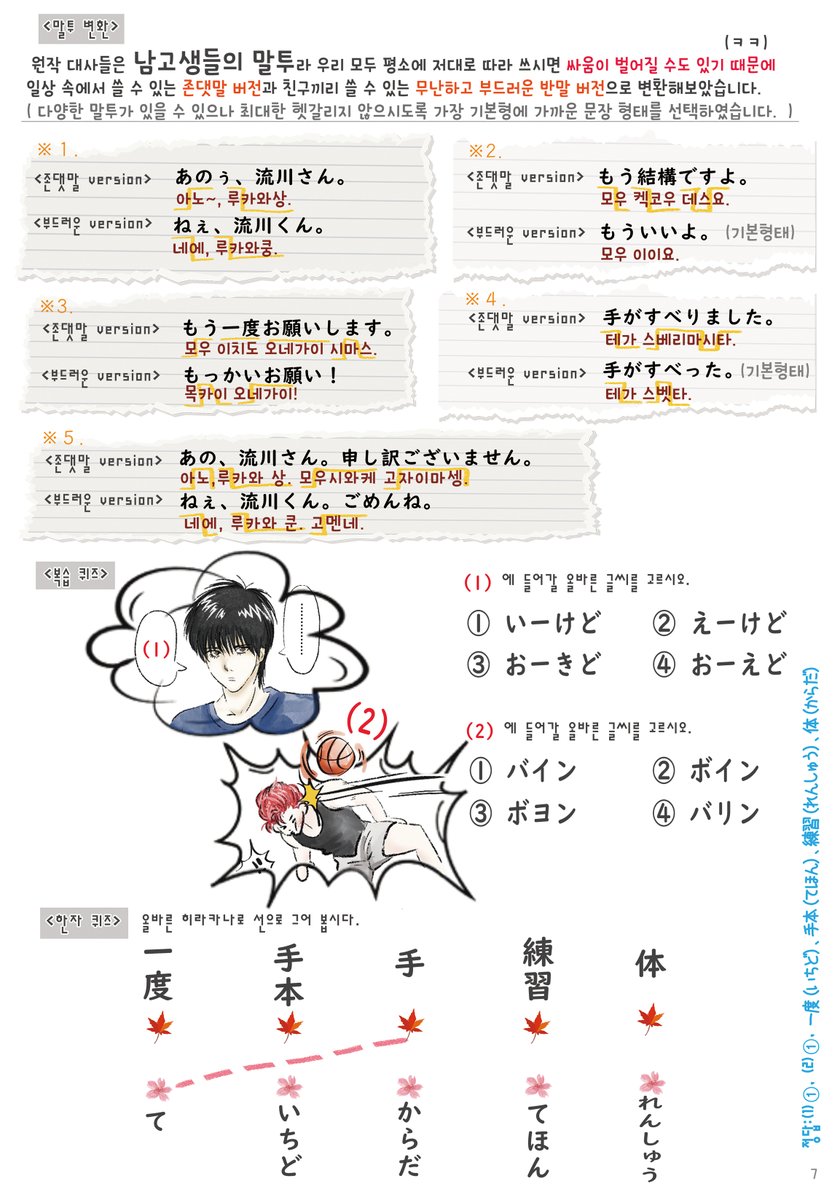 <말투 변환>
(ㅋㅋ)
원작 대사들은 남고생들의 말투라 우리 모두 평소에 저대로 따라 쓰시면 싸움이 벌어질 수도 있기 때문에
일상 속에서 쓸 수 있는 존댓말 버전과 친구끼리 쓸 수 있는 무난하고 부드러운 반말 버전으로 변환해보았습니다.
( 다양한 말투가 있을 수 있으나 최대한 헷갈리지 않으시도록 가장 기본형에 가까운 문장 형태를 선택하였습니다. )
※1.
<존댓말 version> あのぅ、流川さん。
아노~, 루카와상.
<부드러운 version> ねぇ、流川くん。
네에, 루카와쿵.
※2.
<존댓말 version> もう結構ですよ。
모우 켁코우 데스요.
<부드러운 version> もういいよ。 (기본형태)
모우 이이요.
※3.
<존댓말 version> もう一度お願いします。
모우 이치도 오네가이 시마스.
<부드러운 version> もっかいお願い!
목카이 오네가이!
※4.
<존댓말 version> 手がすべりました。
테가 스베리마시타.
<부드러운 version> 手がすべった。(기본형태)
테가 스벳타.
※5.
<존댓말 version> あの、流川さん。申し訳ございません。
아노,루카와 상. 모우시와케 고자이마셍.
<부드러운 version> ねぇ、流川くん。ごめんね。
네에, 루카와 쿤. 고멘네.
<복습 퀴즈>
(1)
(2)
(1) 에 들어갈 올바른 글씨를 고르시오.
① いーけど ② えーけど
③ おーきど ④ おーえど
(2) 에 들어갈 올바른 글씨를 고르시오.
① バイン ② ボイン
③ ボヨン ④ バリン
<한자 퀴즈> 올바른 히라카나로 선으로 그어 봅시다.
一度
手本
手
練習
体
て
いちど
からだ
てほん
れんしゅう
정답:(1)①, (2)①, 一度(いちど)、手本(てほん)、練習(れんしゅう)、体(からだ)
7